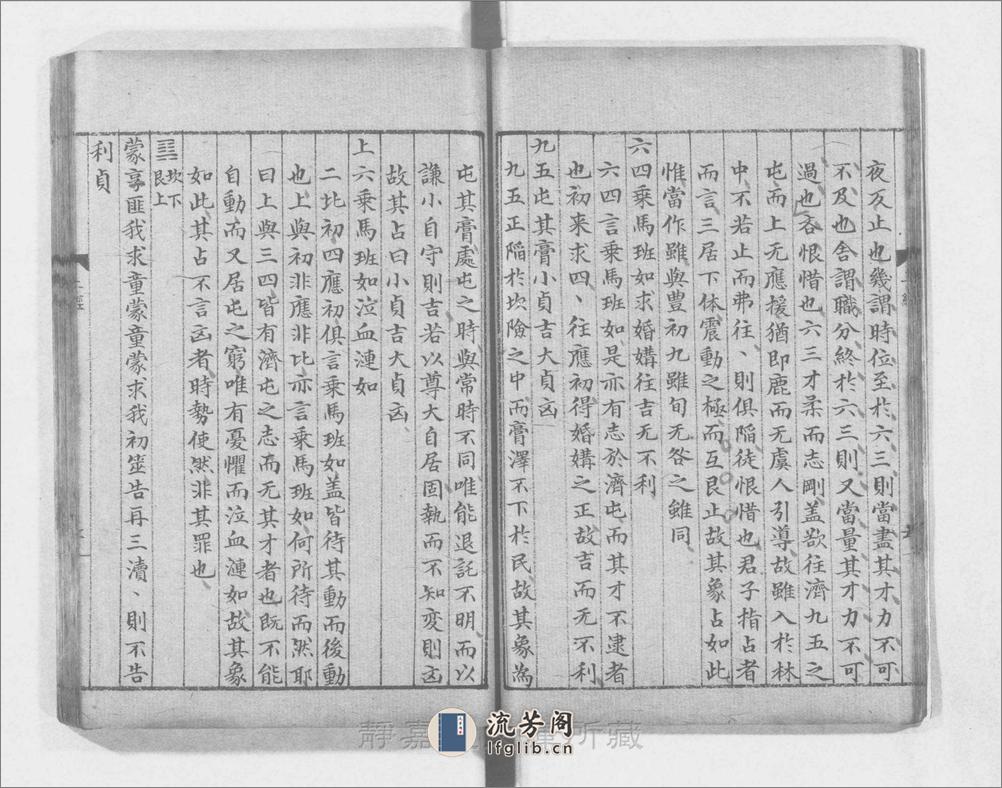 夜反止也幾謂時位至於六三則當盡其才力不可
不及也舍謂職分終於六三則又當量其才力不可
過也吝恨惜也六三才柔而志剛盖欲往濟九五之
屯而上无應援猶即鹿而无虞人引導故雖入於林
中不若止而弗往、則俱陷徒恨惜也君子指占者
而言三居下体震動之極而互艮止故其象占如此
惟當作雖與豊初九雖旬无咎之雖同
六四乘馬班如求婚媾往吉无不利
六四言乘馬班如是亦有志於濟屯而其才不逮者
也初來求四、往應初得婚媾之正故吉而无不利
九五屯其膏小貞吉大貞凶
九五正陷於坎險之中而膏澤不下於民故其象為
屯其膏處屯之時與常時不同唯能退託不明而以
謙小自守則吉若以尊大自居固執而不知变則凶
故其占曰小貞吉大貞凶
上六乘馬班如泣血漣如
二比初四應初俱言乘馬班如盖皆待其動而後動
也上與初非應非比亦言乘馬班如何所待而然耶
曰上與三四皆有濟屯之志而无其才者也既不能
自動而又居屯之窮唯有憂懼而泣血漣如故其象
如此其占不言凶者時勢使然非其罪也
䷃坎下艮上
蒙亨匪我求童蒙童蒙求我初筮告再三瀆、則不告
利貞
上經
流芳阁
lfglib.cn
靜嘉
所藏